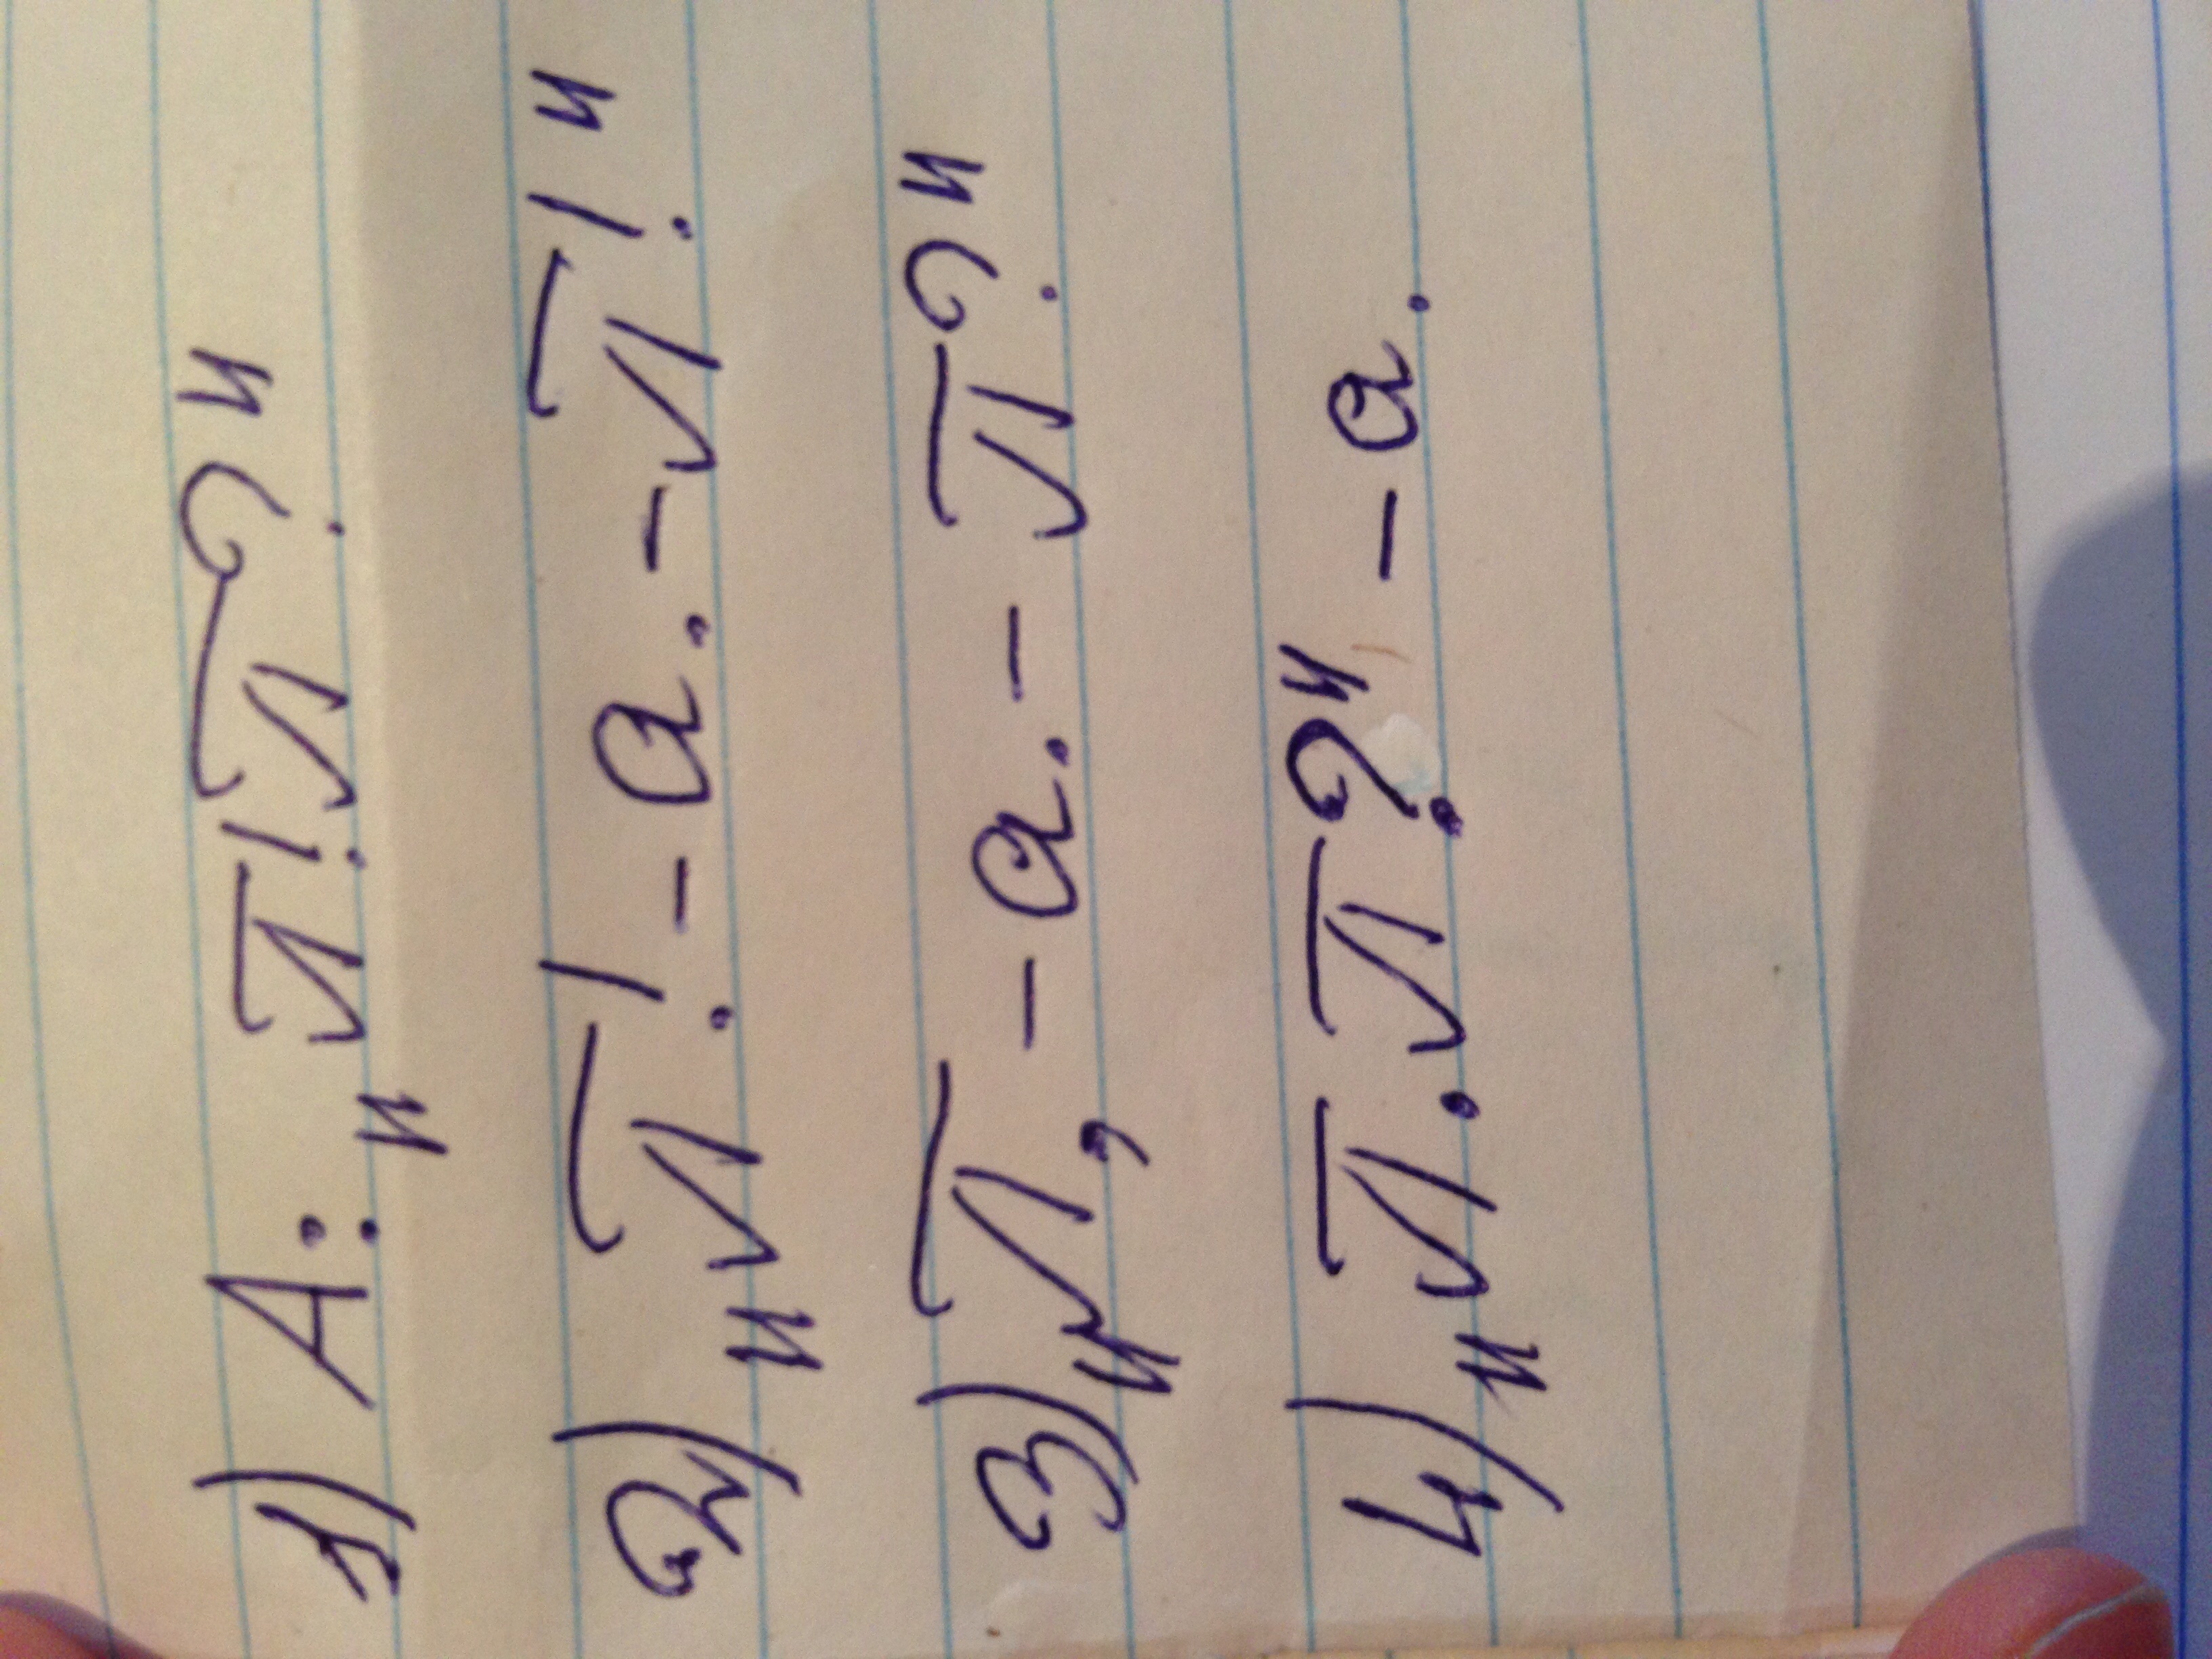 1) А: „П! П?“
2) „П! – а. – П!“
3) „П, – а. – П?“
4) „П. П?“ – а.